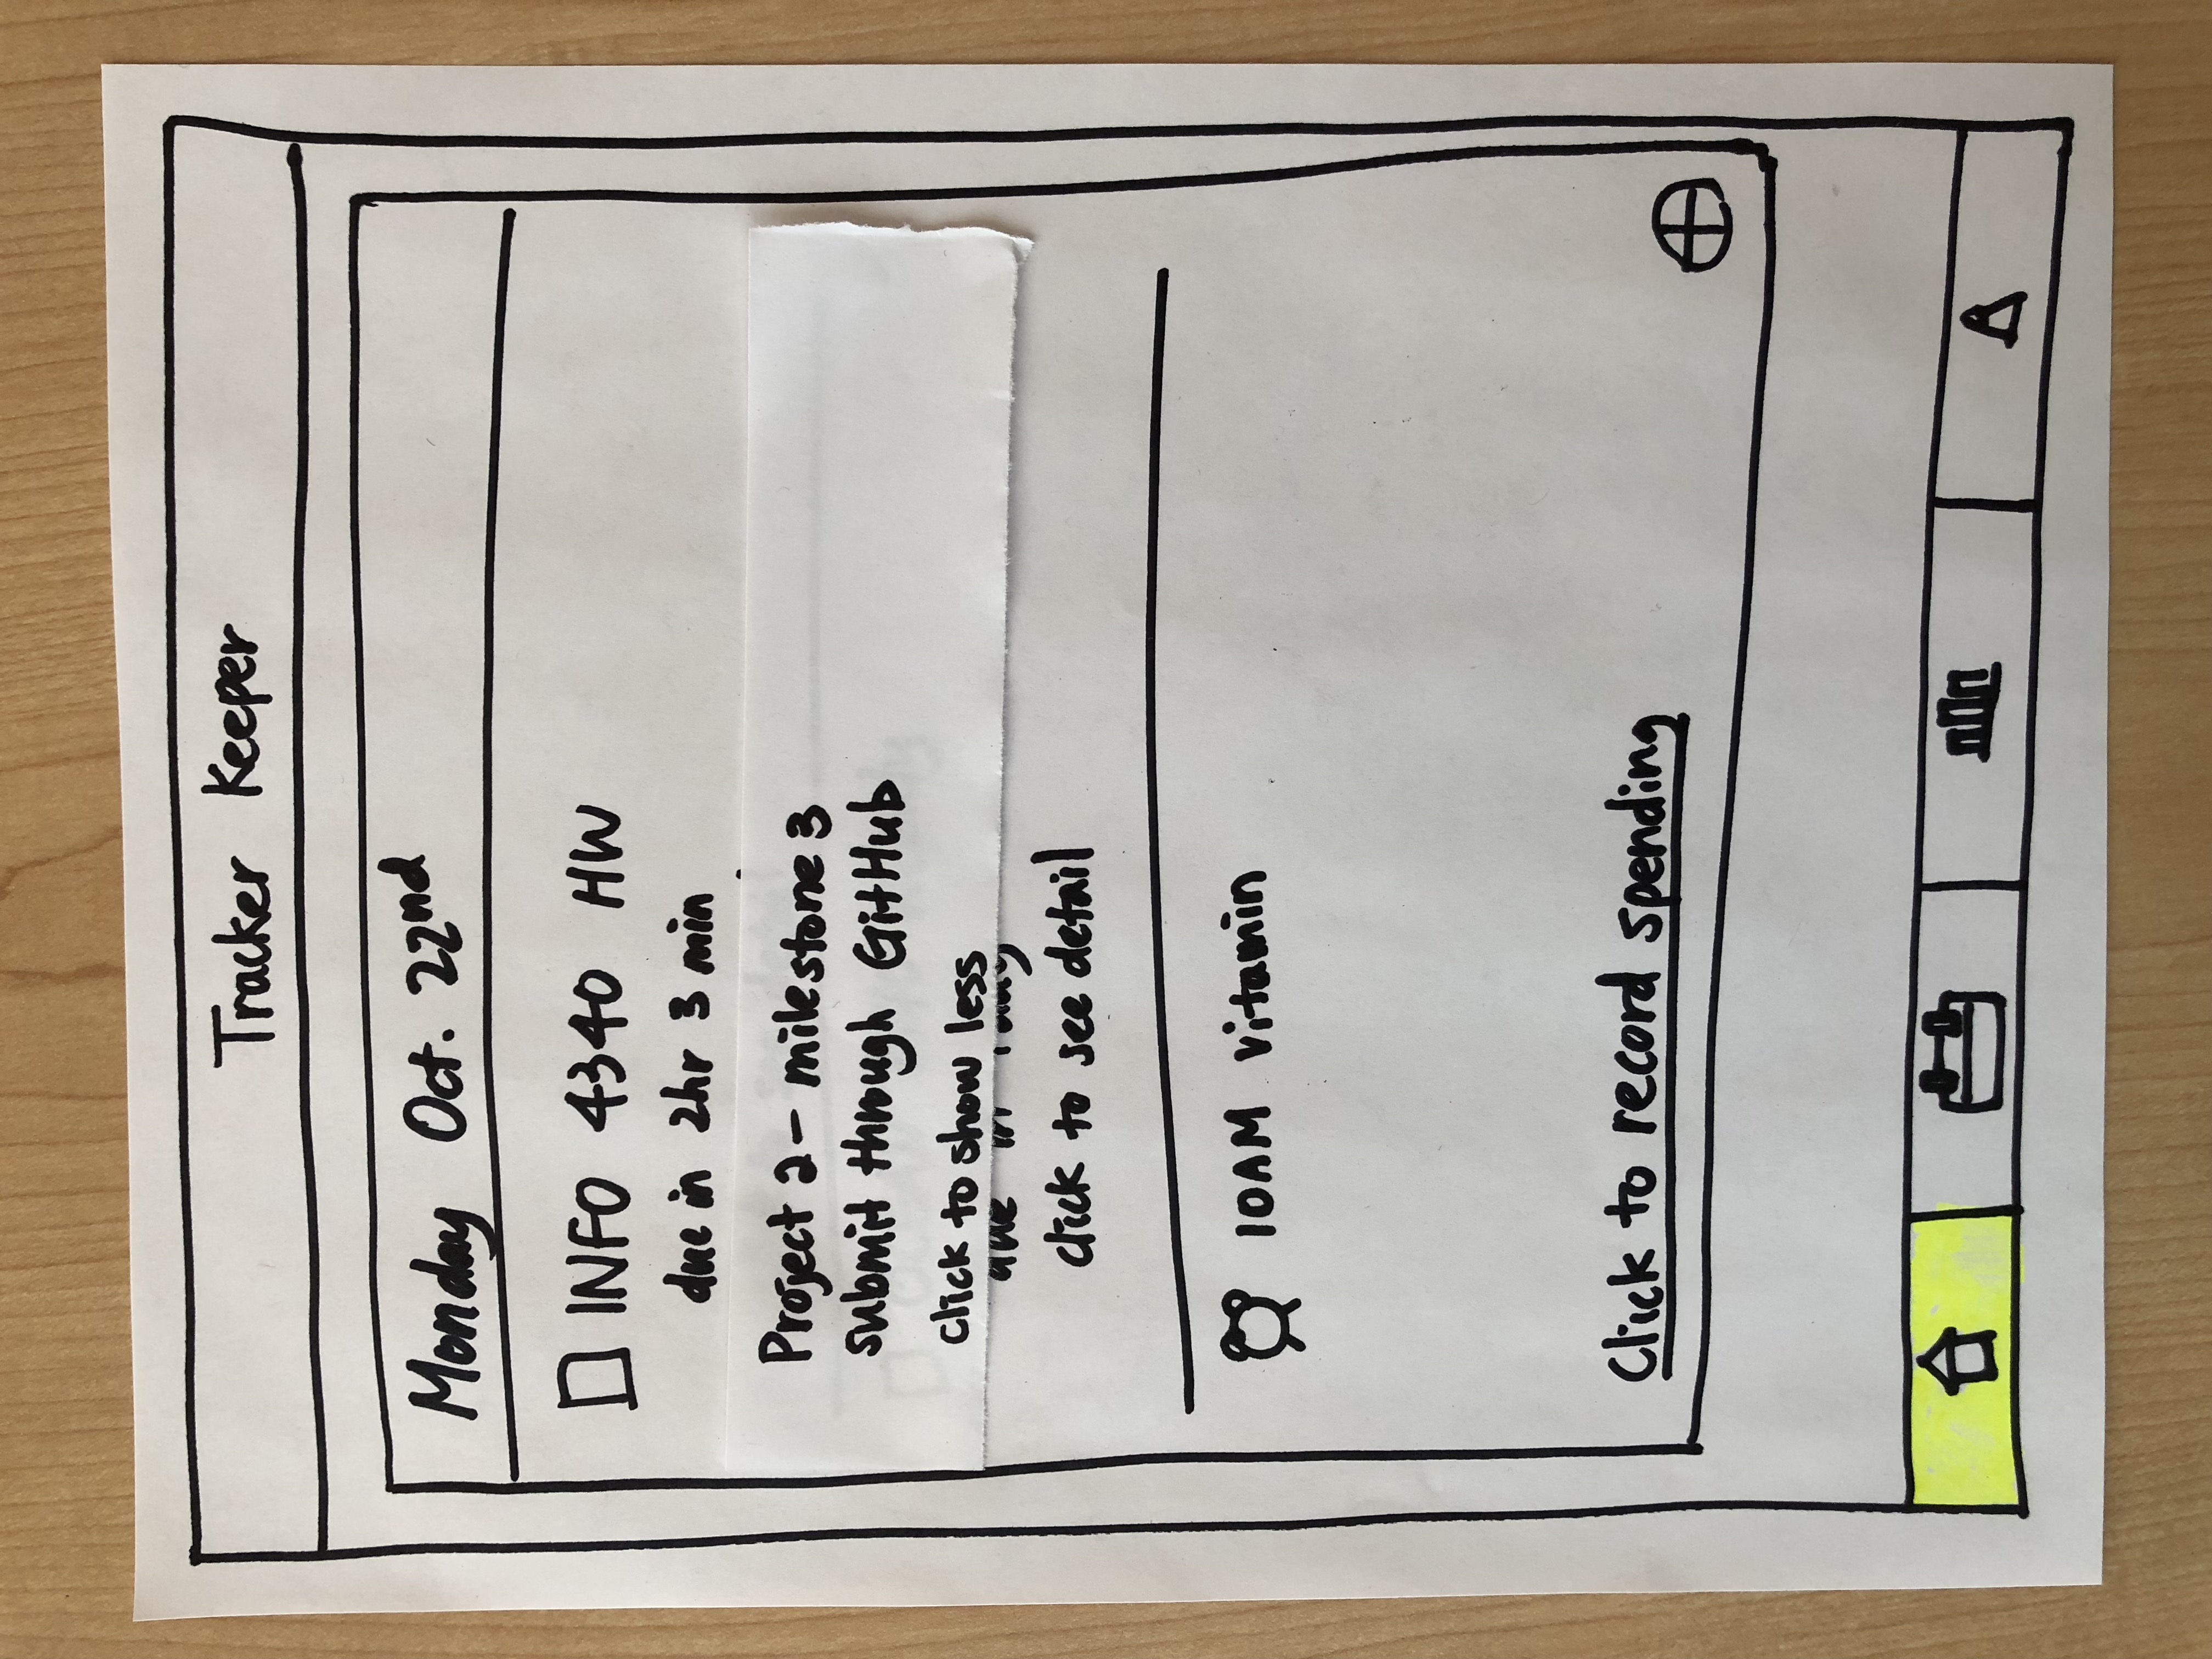 Tracker Keeper
Monday Oct. 22nd
INFO 4340 HW
due in 2hr 3 min
Project 2 - milestone 3
submit through GitHub
click to show less
due in
click to see detail
10AM vitamin
Click to record spending